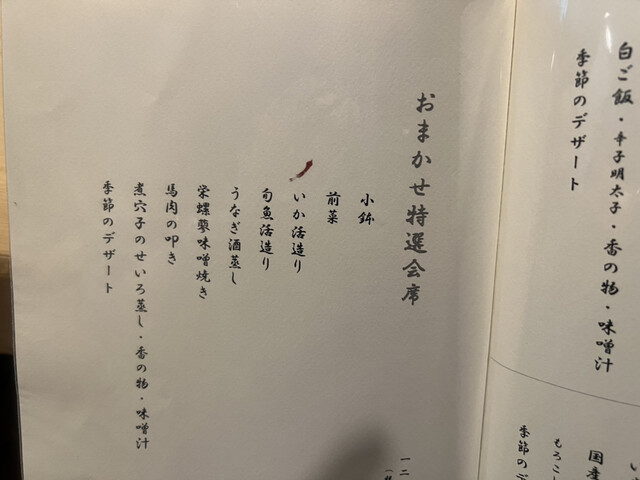 白ご飯・辛子明太子・香の物・味噌汁
季節のデザート
国産
もろこ
季節のデ
おまかせ特選会席
小鉢
前菜
いか活造り
旬魚活造り
うなぎ酒蒸し
栄螺蓼味噌焼き
馬肉の叩き
煮穴子のせいろ蒸し・香の物・味噌汁
季節のデザート
一二